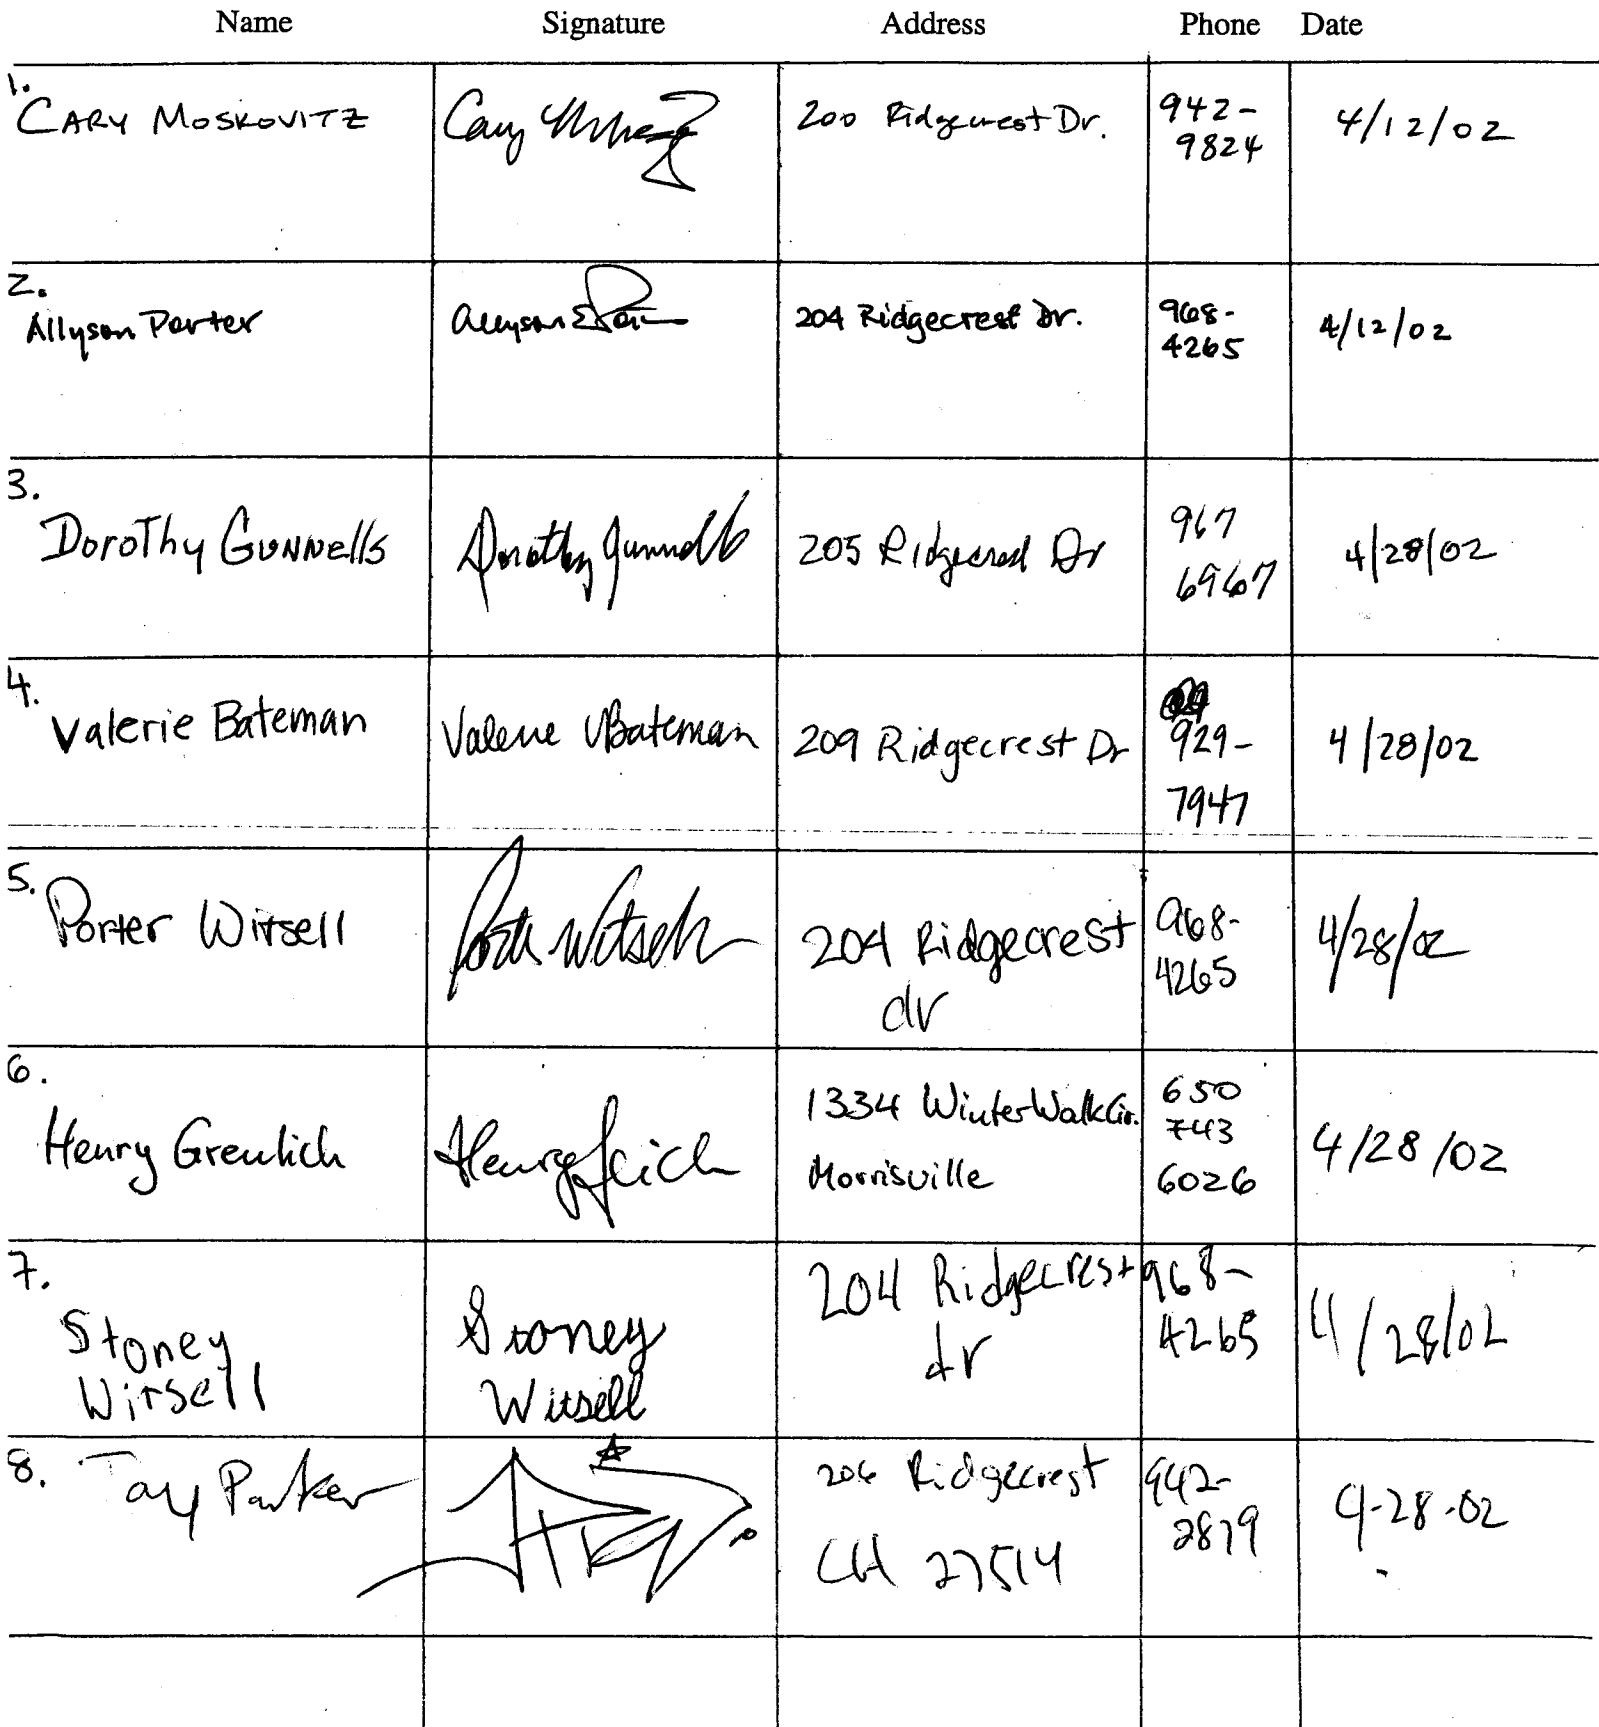 Name Signature Address Phone Date
1.
CARY MOSKOVITZ Cary 200 Ridgecrest Dr. 942-
9824 4/12/02
2.
Allyson Porter Allyson E 204 Ridgecrest Dr. 968-
4265 4/12/02
3.
Dorothy Gunnells Dorothy Gunnells 205 Ridgecrest Dr 967
6967 4/28/02
4.
Valerie Bateman Valerie Bateman 209 Ridgecrest Dr 929-
7947 4/28/02
5.
Porter Witsell Porter Witsell 204 Ridgecrest
dr 968-
4265 4/28/02
6.
Henry Greulich Henry 1334 Winter Walk Cir.
Morrisville 650
743
6026 4/28/02
7.
Stoney
Witsell Stoney
Witsell 204 Ridgecrest
dr 968-
4265 4/28/02
8. Tay Parker 206 Ridgecrest
CH 27514 942-
2879 4-28-02